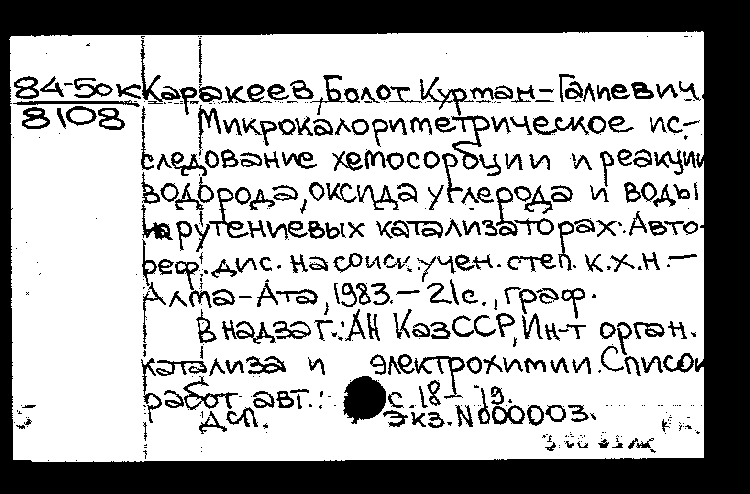 84-50к Каракеев, Болот Курман-Галиевич.
8108 Микрокалориметрическое ис-
следование хемосорбции и реакции
водорода, оксида углерода и воды
на рутениевых катализаторах. Авто-
реф. дис. на соиск. учен. степ. к.х.н. —
Алма-Ата, 1983. — 21с., граф.
В надзаг.: АН КазССР, Ин-т орган.
катализа и электрохимии. Список
работ авт.: с. 18 – 19.
ДСП. Экз. N000003.